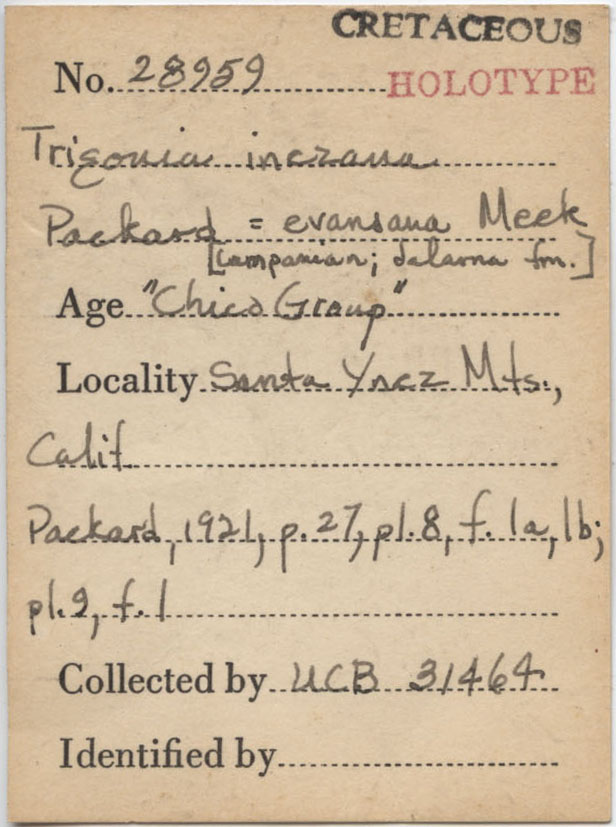 CRETACEOUS
No. 28959 HOLOTYPE
Trigonia inezana
Packard = evansana Meek
[Campanian; Jalama fm.]
Age "Chico Group"
Locality Santa Ynez Mts.,
Calif.
Packard, 1921, p. 27, pl. 8, f. 1a, 1b;
pl. 9, f. 1
Collected by UCB 31464
Identified by